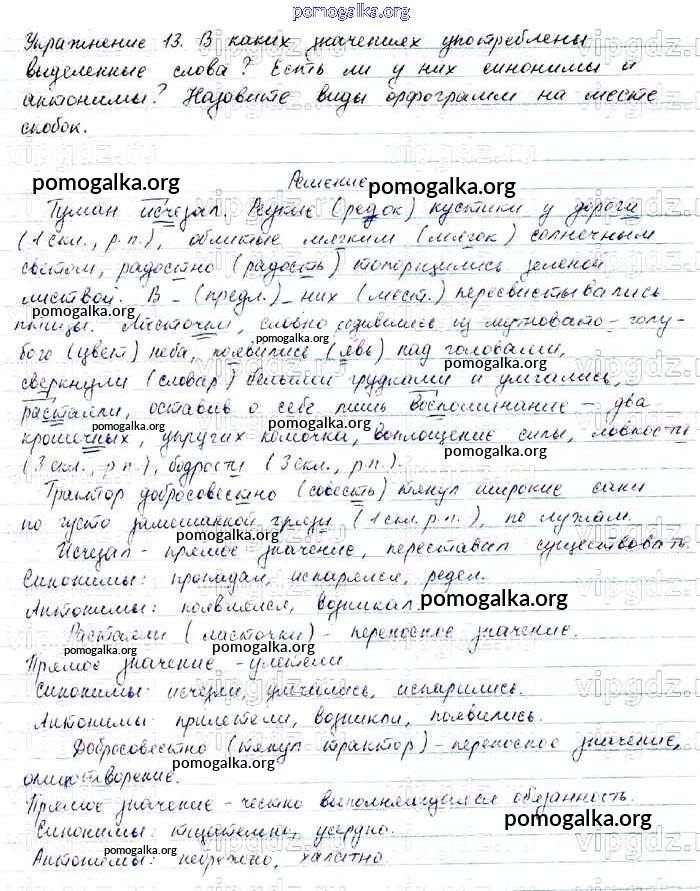 pomogalka.org
Упражнение 13. В каких значениях употреблены
выделенные слова? Есть ли у них синонимы и
антонимы? Назовите виды орфограмм на месте
скобок.
Решение
pomogalka.org pomogalka.org
Туман исчезал. Редкие (редок) кустики у дороги
(1 скл., р.п.), облитые мягким (мягок) солнечным
светом, радостно (радость) топорщились зеленой
листвой. В - (предл.) - них (мест.) пересвистывались
pomogalka.org
птицы. Ласточки, словно отделившиеся из мутновато-голу-
бого (цвет) неба, появились (явь) над головами,
pomogalka.org
сверкнули (словар) белыми грудками и умчались,
pomogalka.org
растаяли, оставив о себе лишь воспоминание - два
крошечных, упругих комочка, воплощение силы, ловкости
pomogalka.org pomogalka.org
(3 скл., р.п.), бодрости (3 скл., р.п.).
Трактор добросовестно (совесть) тянул широкие сани
по густо замешанной грязи (1 скл. р.п.), по лужам.
pomogalka.org
Исчезал - прямое значение, переставал существовать.
Синонимы: пропадал, испарялся, редел.
Антонимы: появлялся, возникал.
pomogalka.org
Растаяли (ласточки) - переносное значение.
pomogalka.org
Прямое значение - улетели
Синонимы: исчезли, умчались, испарились.
Антонимы: прилетели, возникли, появились.
Добросовестно (тянул трактор) - переносное значение,
pomogalka.org
олицетворение.
Прямое значение - честно выполняющийся обязанность.
pomogalka.org
Синонимы: тщательно, усердно.
Антонимы: небрежно, халатно
pomogalka.org pomogalka.org
vipgdz.ru